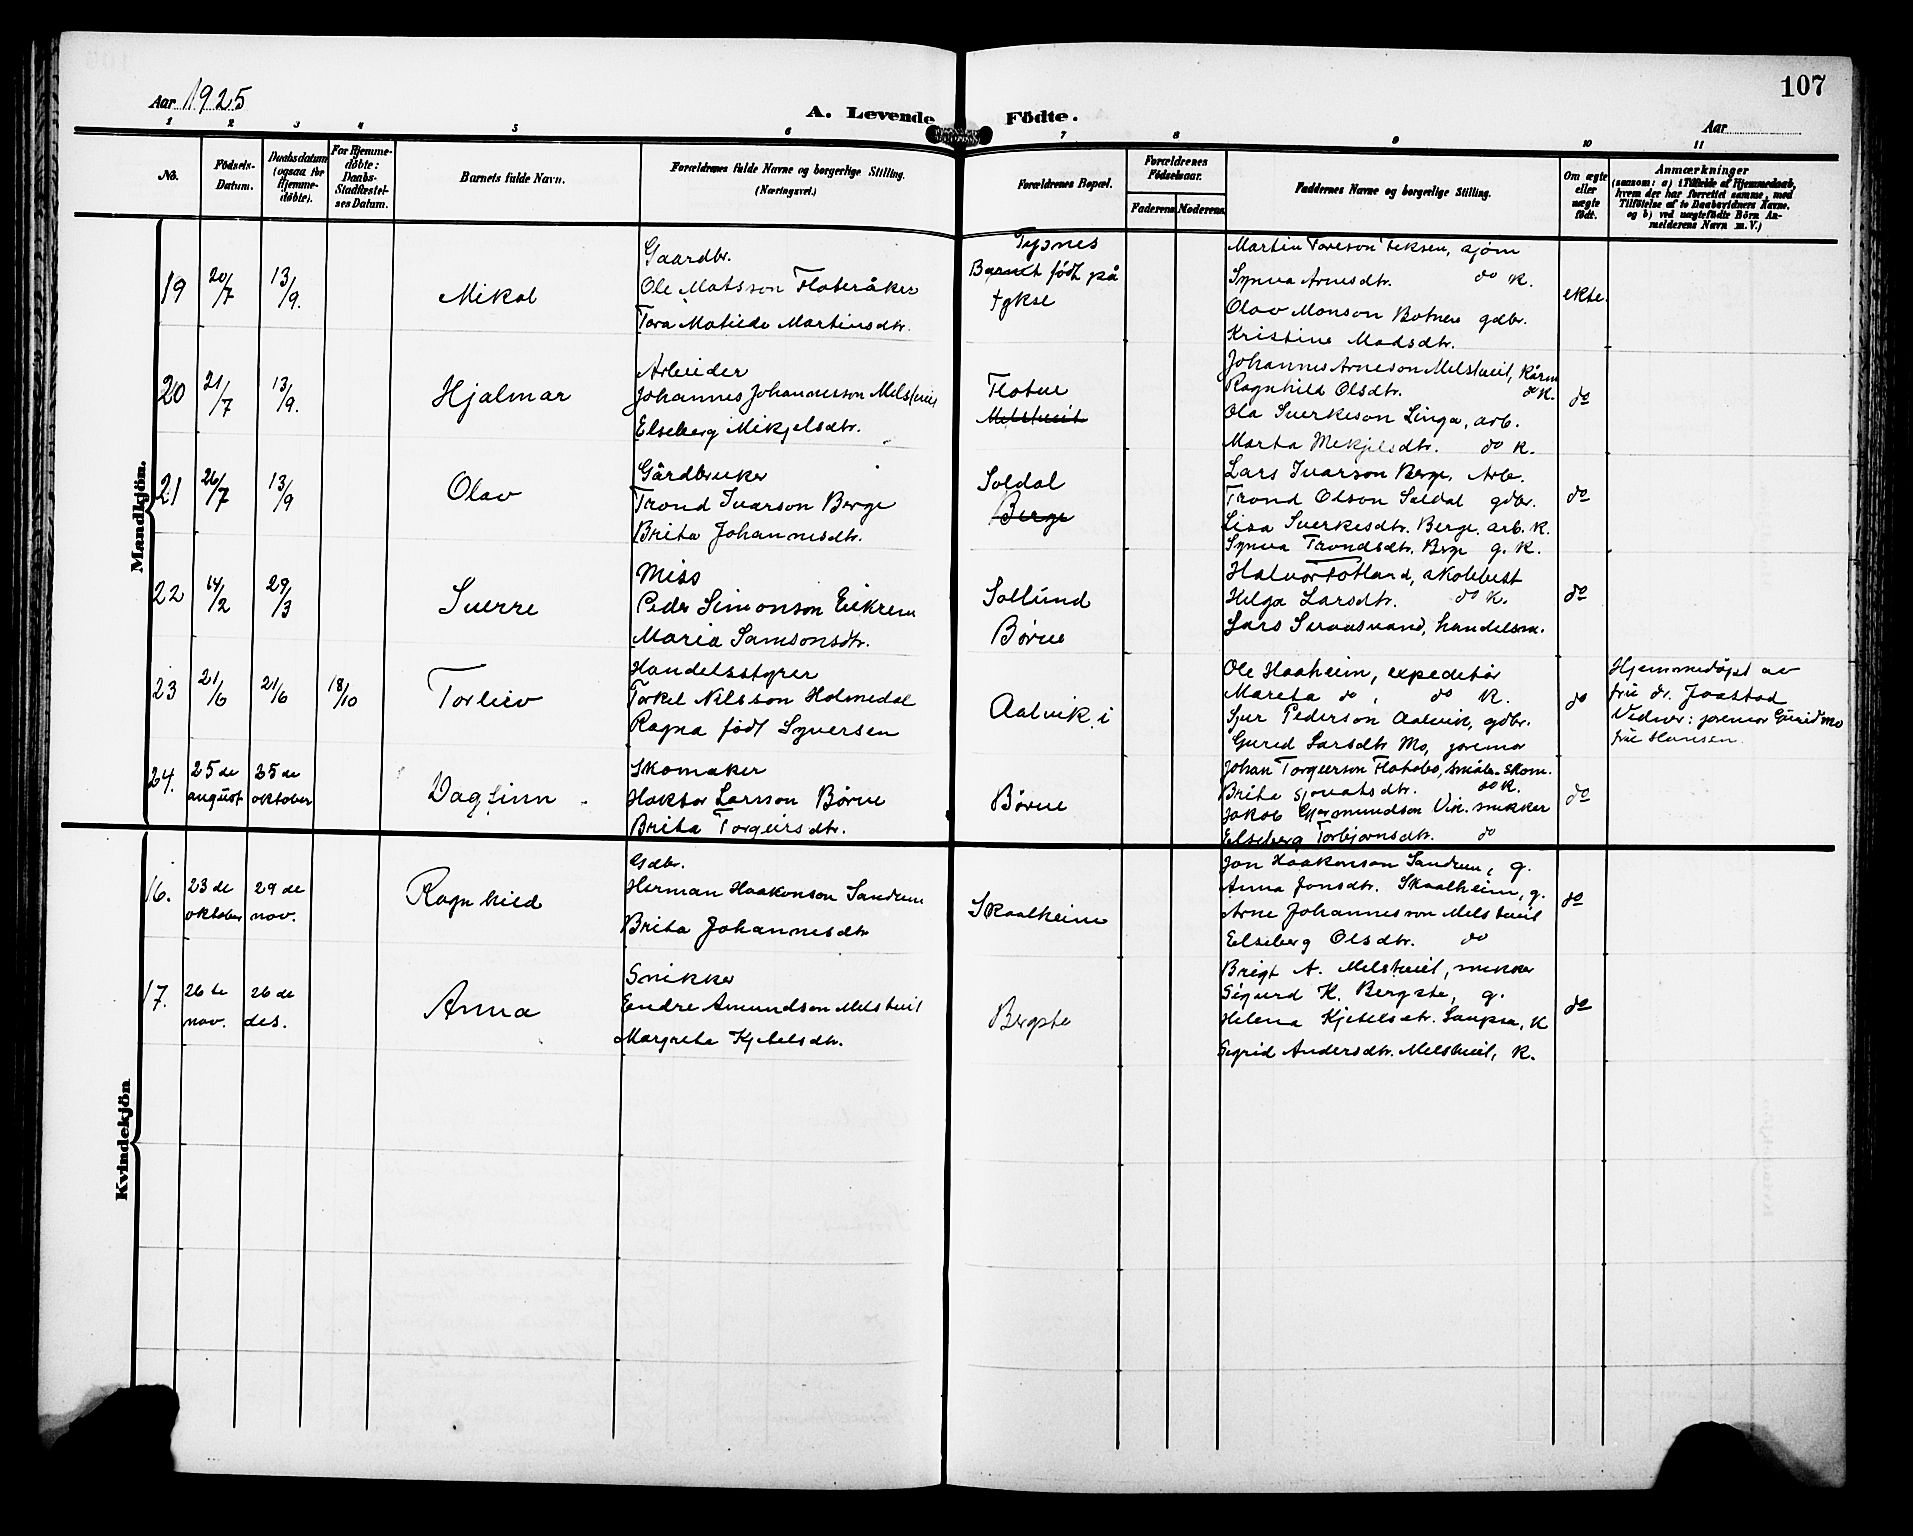 107
Aar 1925
A. Levende Födte.
Aar
1 2 3 4 5 6 7 8 9 10 11
No.
Födsels-Datum.
Daabsdatum (ogsaa for Hjemme-döbte).
For Hjemme-döbte: Daabs-Stadfæstel-ses Datum.
Barnets fulde Navn.
Forældrenes fulde Navne og borgerlige Stilling.
(Næringsvei.)
Forældrenes Bopæl.
Forældrenes Födselsaar.
Faderens. Moderens.
Faddernes Navne og borgerlige Stilling.
Om ægte eller uægte födt.
Anmærkninger
(saasom: a) i Tilfælde af Hjemmedaab, hvem der har forrettet samme, med Tilföielse af to Daabsvidners Navne, og b) ved uægtefödte Börn Anmelderens Navn m. V.)
Mandkjön.
19 20/7 13/9.
Mikal
Gaardbr.
Ole Matsson Flateråker
Tora Matilde Martinsdtr.
Tysnes
Barnet født på
Tykse
Martin Toreson Teksen, sjöm
Synva Arnesdtr. do K.
Olav Monson Botnen gdbr.
Kristine Madsdtr.
ekte.
20 21/7 13/9.
Hjalmar
Arbeider
Johannes Johannesson Melstveit
Elseberg Mikjelsdtr.
Flotve
Melstveit
Johannes Arneson Melstveit, Kårm
Ragnhild Olsdtr. do K.
Ola Sverkeson Linga, arb.
Marta Mekjelsdtr. do K.
do
21 26/7 13/9
Olav
Gårdbruker
Trond Ivarson Berge
Brita Johannesdtr.
Soldal
Berge
Lars Ivarson Berge, Arb.
Trond Olson Soldal gdbr.
Lisa Sverkesdtr. Berge, arb. K.
Synva Trondsdtr. Berge g. K.
do
22 14/2 29/3
Sverre
Miss
Peder Simonson Eikrem
Maria Samsonsdtr.
Sollund
Børve
Halvor Fotland, skolebest
Helga Larsdtr. do K.
Lars Svaasand, handelsm.
do
23 21/6 21/6 18/10
Torleiv
Handelsstyrer
Torkel Nilsson Holmedal
Ragna født Syversen
Aalvik i
Ole Haaheim, expeditør
Mareta do, do K.
Sjur Pederson Aalvik, gdbr.
Gurid Larsdtr Mo, jormor
do
Hjemmedøpt av
fru dr. Jaastad
Vidner: jormor Gurid Mo
frue Hansen.
24. 25 de august 25 de oktober
Dagfinn
Skomaker
Haktor Larsson Børve
Brita Torgeirsdtr.
Børve
Johan Torgeirson Flotabø, småbr. skom.
Brita Sjovatsdtr. do K.
Jakob Gjermundson Vik. snikker
Elseberg Torbjørnsdtr. do
do
Kvindekjön
16. 23 de oktober 29 de nov.
Ragnhild
Gdbr.
Herman Haakonson Sandven
Brita Johannesdtr
Skaalheim
Jon Haakonson Sandven, g.
Anna Jonsdtr. Skaalheim, g.
Arne Johannesson Melstveit
Elseberg Olsdtr. do
do
17. 26 te nov. 26 de des.
Anna
Snikker
Endre Amundson Melstveit
Margreta Kjetelsdtr.
Bergste
Brigt A. Melstveit, snikker
Sigurd K. Bergste, g.
Helena Kjetelsdtr. Saupsa, K
Sigrid Andersdtr. Melstveit, K.
do